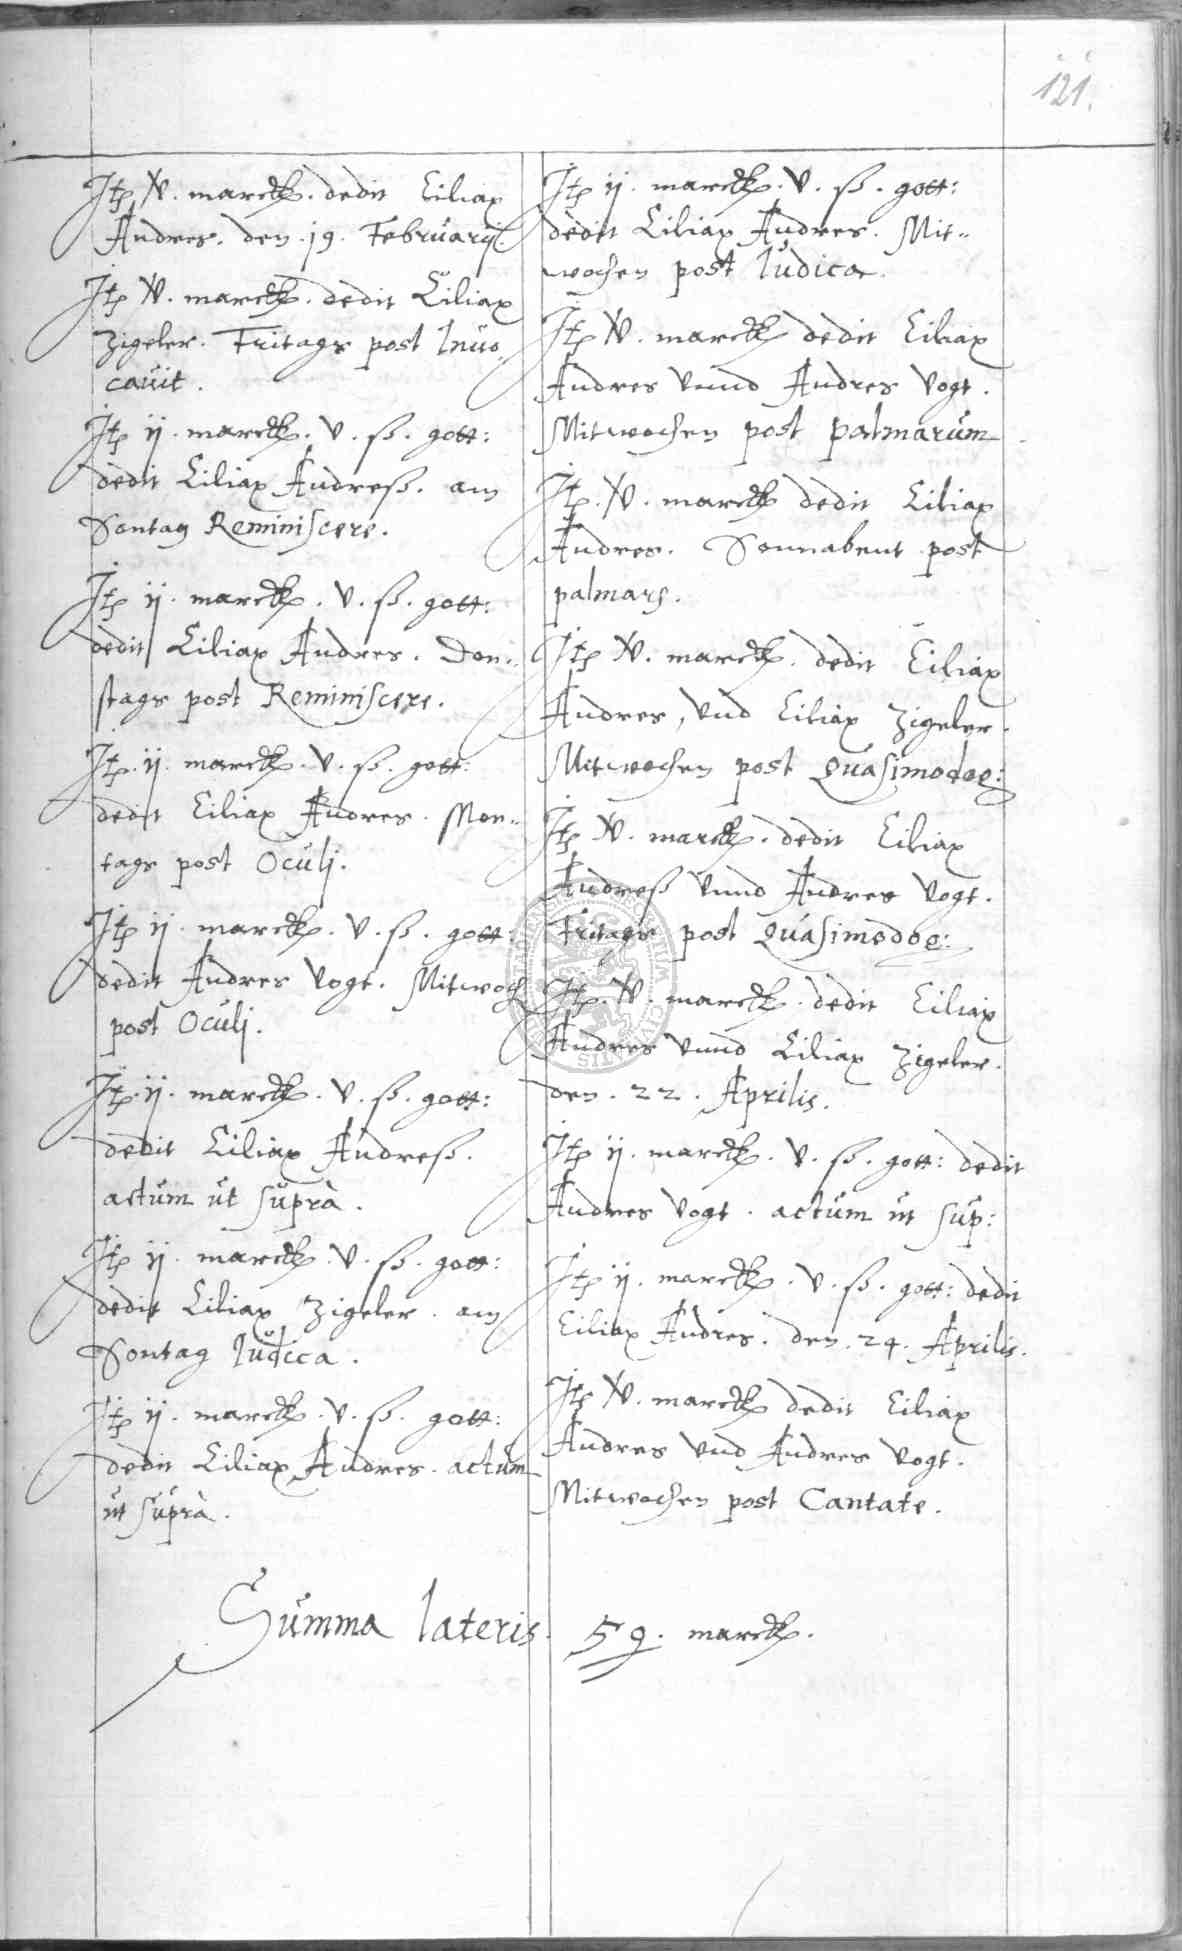 121.
Jtꝫ V̸. marckꝫ. dedit Ciliax
Andres. den. 19. Februarij.
Jtꝫ V̸. marckꝫ. dedit Ciliax
Zigeler. Fritags post Inuo
cauit.
Jtꝫ ij. marckꝫ. v. ß. gott:
dedit Ciliax Andreß. am
Sontag Reminiscere.
Jtꝫ ij. marckꝫ. v. ß. gott:
dedit Ciliax Andres. Don=
stags post Reminiscere.
Jtꝫ. ij. marckꝫ. v. ß. gott:
dedit Ciliax Andres. Mon=
tags post Oculj.
Jtꝫ ij. marckꝫ. v. ß. gott:
dedit Andres Vogt. Mitwoch
post Oculj.
Jtꝫ. ij. marckꝫ. v. ß. gott:
dedit Ciliax Andreß.
actum ut suprà.
Jtꝫ ij. marckꝫ. v. ß. gott:
dedit Ciliax Zigeler. am
Sontag Iudica.
Jtꝫ ij. marckꝫ. v. ß. gott:
dedit Ciliax Andres. actum
ut suprà.
Jtꝫ ij. marckꝫ. v. ß. gott:
dedit Ciliax Andres. Mit=
wochen post Iudica.
Jtꝫ V̸. marckꝫ dedit Ciliax
Andres Vnnd Andres Vogt.
Mitwochen post palmarum
Jtꝫ. V̸. marckꝫ dedit Ciliax
Andres. Sonnabent post
palmarꝫ.
Jtꝫ V̸. marckꝫ. dedit Ciliax
Andres, Vnd Ciliax Zigeler.
Mitwochen post Quasimodog:
Jtꝫ V̸. marckꝫ. dedit Ciliax
Andreß Vnnd Andres Vogt.
Fritags post Quasimodog:
Jtꝫ. V̸. marckꝫ. dedit Ciliax
Andres Vnnd Ciliax Zigeler.
den. 22. Aprilis.
Jtꝫ ij. marckꝫ. v. ß. gott: dedit
Andres Vogt. actum ut sup:
Jtꝫ ij. marckꝫ. v. ß. gott: dedit
Ciliax Andres. den. 24. Aprilis.
Jtꝫ V̸. marckꝫ dedit Ciliax
Andres Vnd Andres Vogt.
Mitwochen post Cantate.
Summa lateris. 59. marckꝫ.